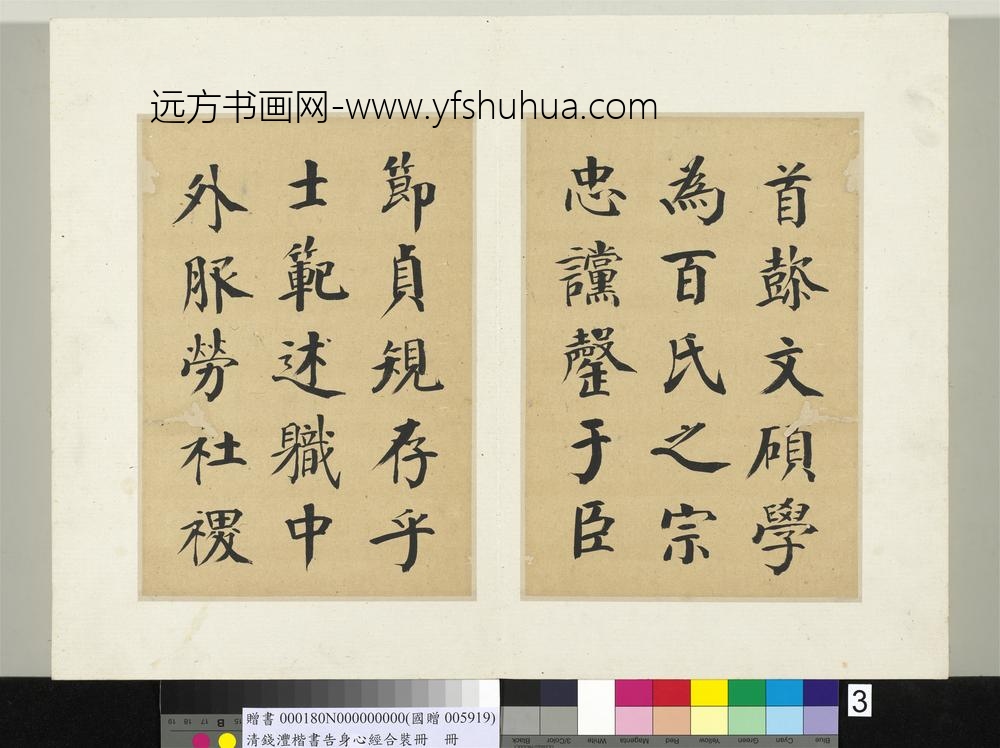 远方书画网-www.yfshuhua.com
首
文碩學
為百氏之宗
忠讜罄于臣
節貞規存乎
士範述職中
外服勞社稷
3
贈書 000180N000000000(國贈 005919)
清錢灃楷書告身心經合裝冊 冊
19 18 17 16 15
B
Black
3/Color
White
Magenta
Red
Yellow
Green
Cyan
Blue